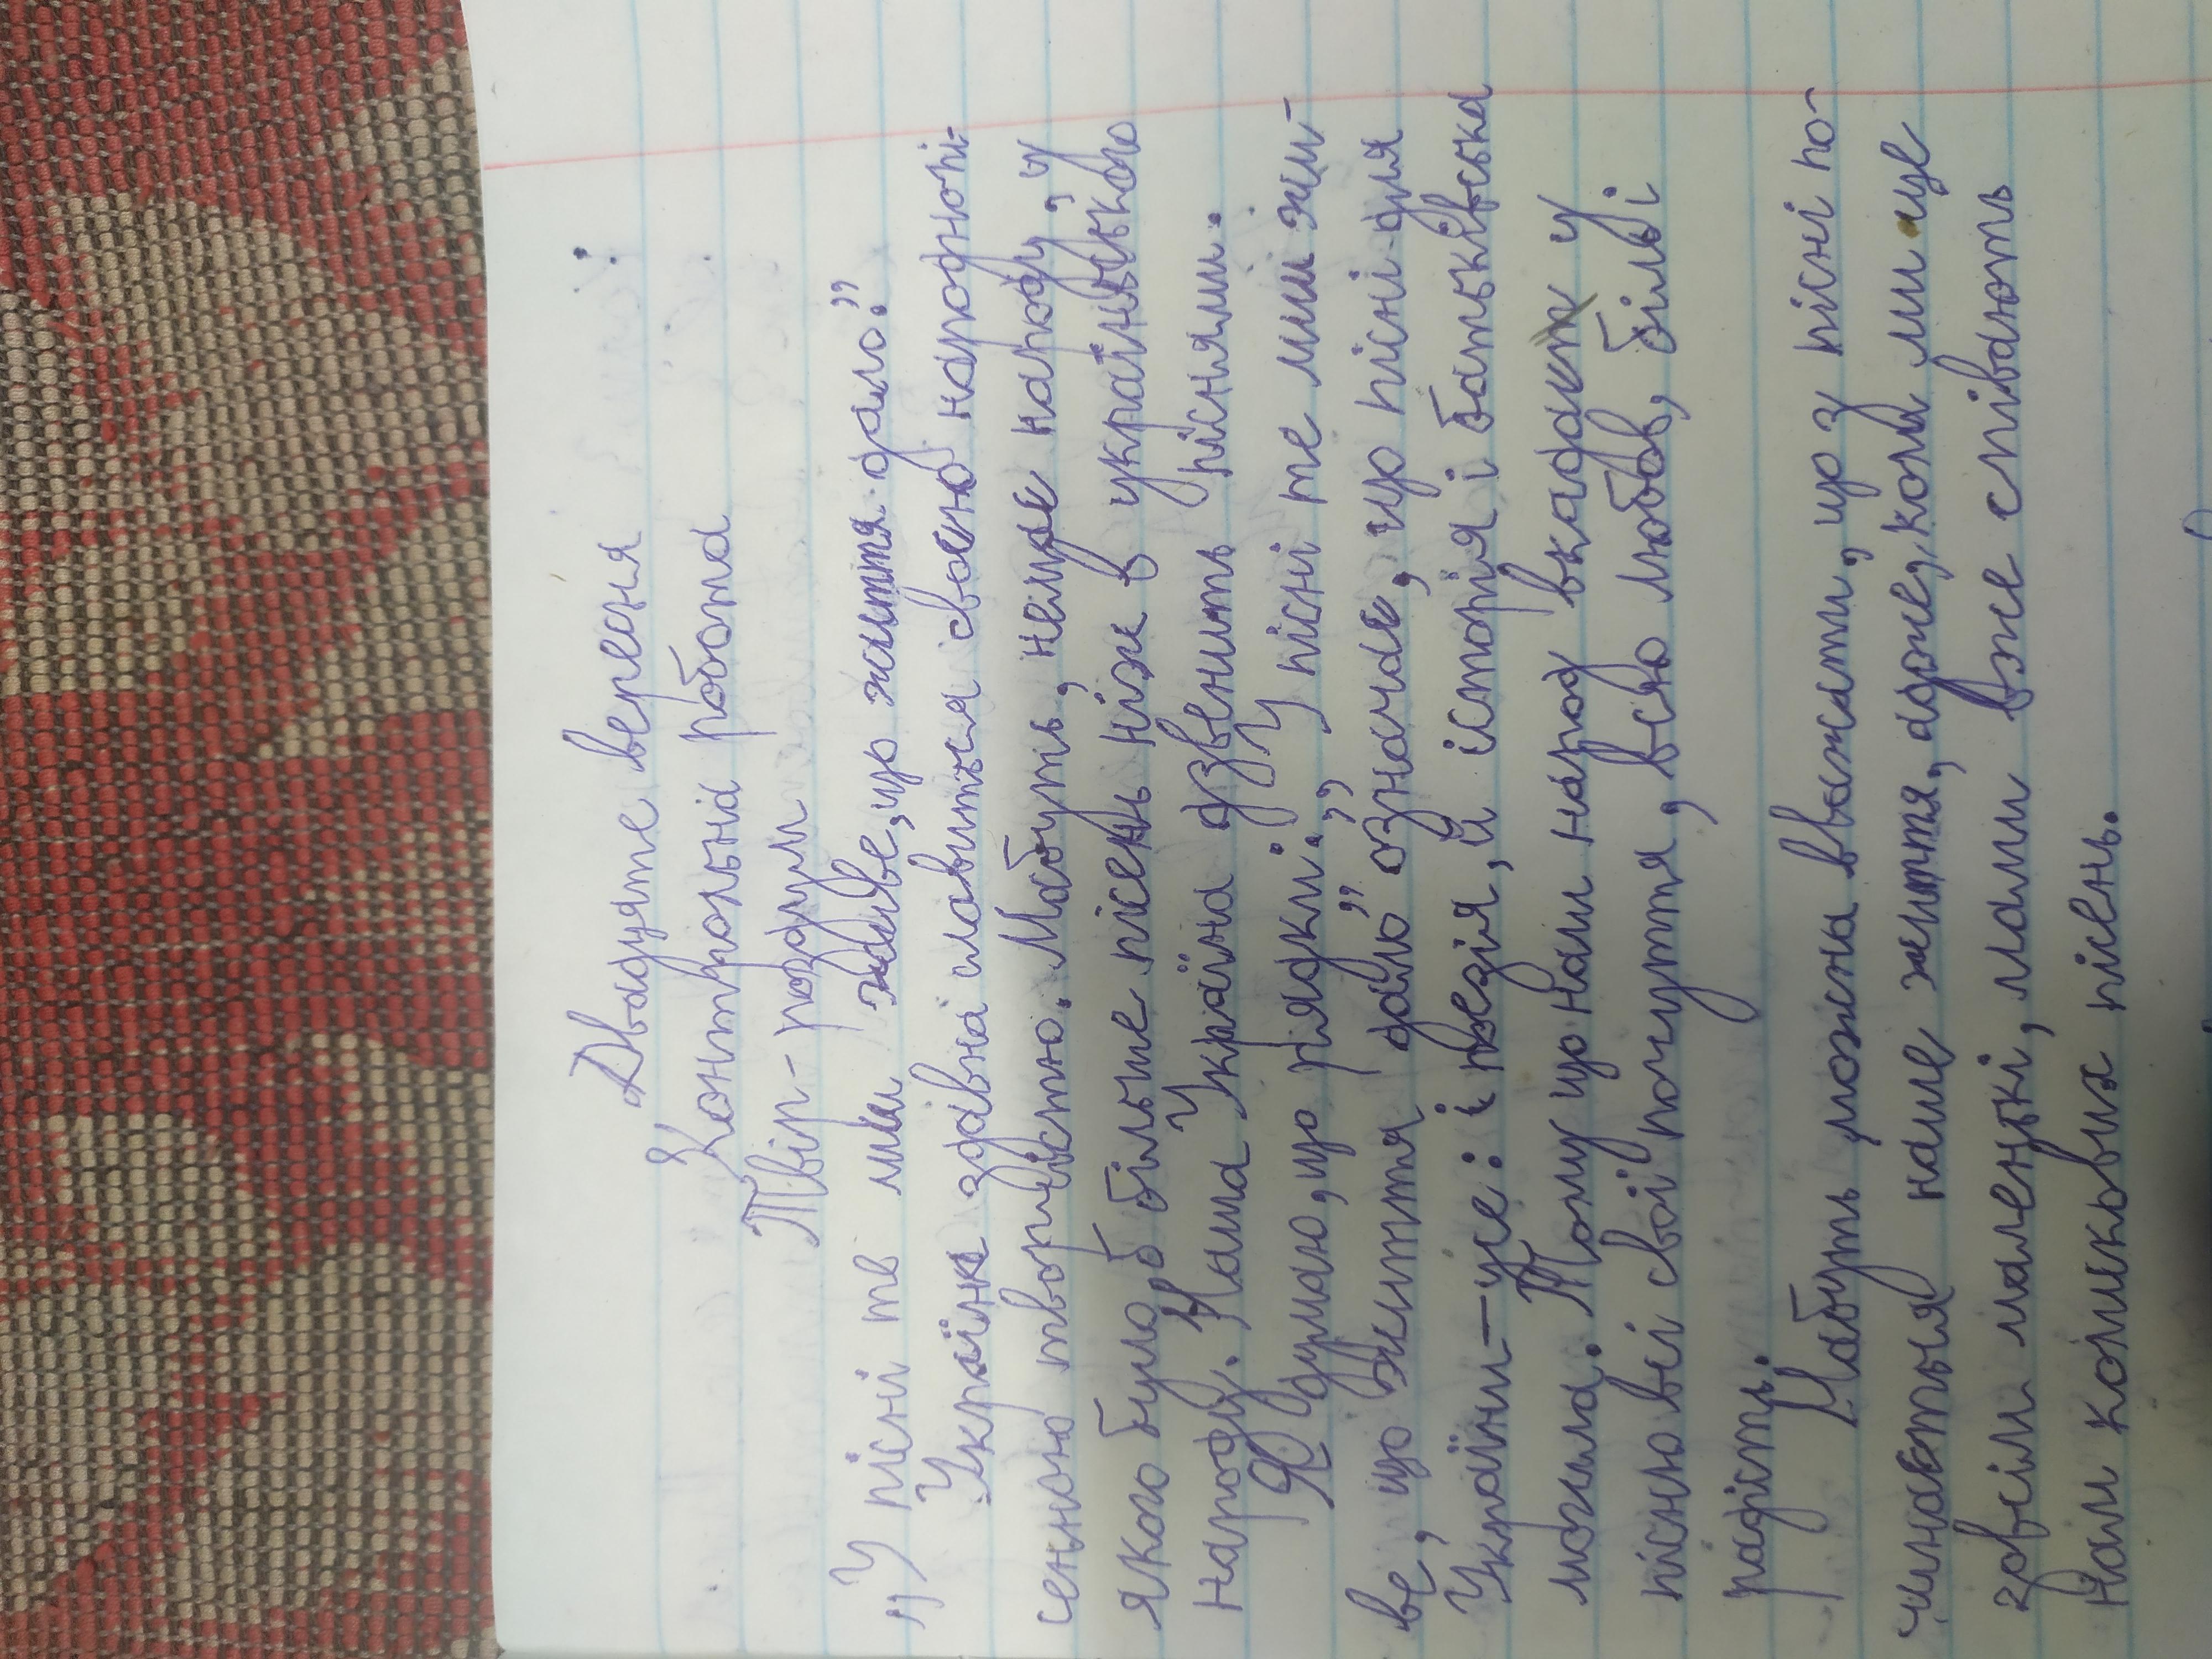 Двадцяте вересня
Контрольна робота
Твір-роздум
„У пісні те лиш живе, що життя дало."
Україна здавна славиться своєю народнопі-
сенною творчістю. Мабуть, немає народу, у
якого було б більше пісень ніж в українського
народу. Наша Україна дзвенить піснями.
Я думаю, що рядки: „У пісні те лиш жи-
ве, що життя дало" означає, що пісні для
України – усе: і поезія, й історія і батьківська
могила. Тому що наш народ вкладає у
пісню всі свої почуття, всю любов, біль і
радість.
Мабуть можна вважати, що з пісні по-
чинається наше життя, адже, коли ми ще
зовсім маленькі, мами вже співають
нам колискових пісень.